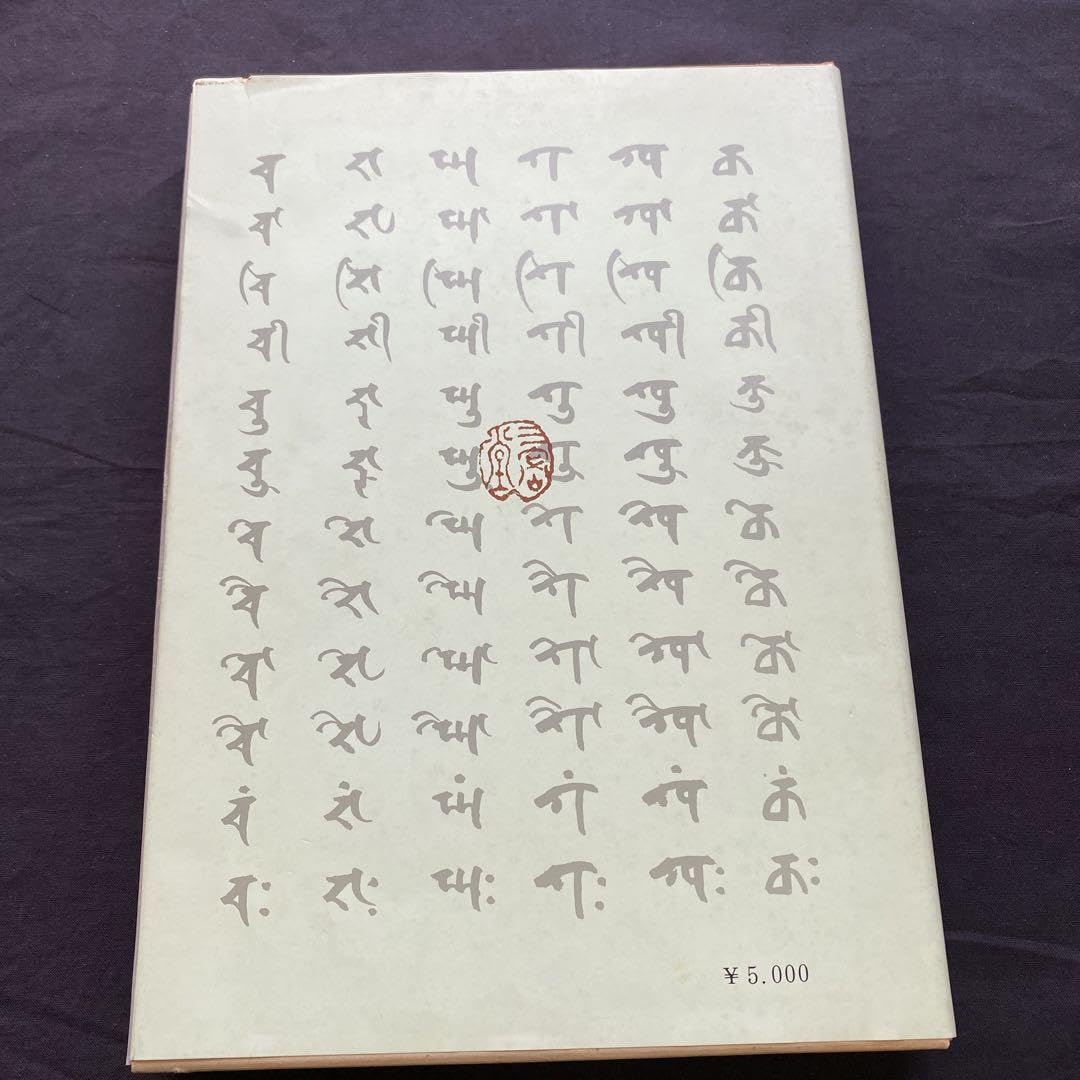 𑖎 𑖎𑖯 𑖎𑖰 𑖎𑖱 𑖎𑖲 𑖎𑖳 𑖎𑖸 𑖎𑖹 𑖎𑖺 𑖎𑖻 𑖎𑖽 𑖎𑖾
𑖏 𑖏𑖯 𑖏𑖰 𑖏𑖱 𑖏𑖲 𑖏𑖳 𑖏𑖸 𑖏𑖹 𑖏𑖺 𑖏𑖻 𑖏𑖽 𑖏𑖾
𑖐 𑖐𑖯 𑖐𑖰 𑖐𑖱 𑖐𑖲 𑖐𑖳 𑖐𑖸 𑖐𑖹 𑖐𑖺 𑖐𑖻 𑖐𑖽 𑖐𑖾
𑖑 𑖑𑖯 𑖑𑖰 𑖑𑖱 𑖑𑖲 𑖑𑖳 𑖑𑖸 𑖑𑖹 𑖑𑖺 𑖑𑖻 𑖑𑖽 𑖑𑖾
𑖒 𑖒𑖯 𑖒𑖰 𑖒𑖱 𑖒𑖲 𑖒𑖳 𑖒𑖸 𑖒𑖹 𑖒𑖺 𑖒𑖻 𑖒𑖽 𑖒𑖾
𑖓 𑖓𑖯 𑖓𑖰 𑖓𑖱 𑖓𑖲 𑖓𑖳 𑖓𑖸 𑖓𑖹 𑖓𑖺 𑖓𑖻 𑖓𑖽 𑖓𑖾
¥5.000